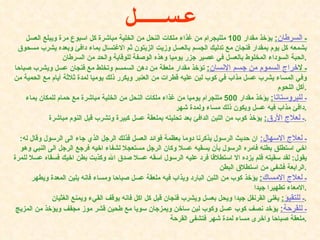 عســـــل
- السرطان: يؤخذ مقدار 100 ملليجرام من غذاء ملكات النحل من الخلية مباشرة كل اسبوع مرة ويبلع العسل
بشمعه كل يوم بمقدار فنجان مع تدليك الجسم بالعسل وزيت الزيتون ثم الاغتسال بماء دافى وبعده يشرب مسحوق
الحبة السوداء المخلوط بالعسل في عصير جزر يوميا وهذه الوصفة للوقاية والحد من السرطان.
- لاخراج السموم من جسم الانسان: تؤخذ مقدار ملعقة من دهن السمسم وتخلط مع فنجان عسل ويشرب صباحا
وفي المساء يشرب عسل مذاب في كوب لبن عليه قطرات من العنبر ويكرر ذلك يوميا لمدة ثلاثة أيام مع الحمية من
أكل اللحوم.
- للبروستاتا: يؤخذ مقدار 500 ملليجرام يوميا من غذاء ملكات النحل من الخلية مباشرة مع حمام للمكان بماء
دافى مذاب فيه عسل ويكون ذلك مساء ولمدة شهر.
- لعلاج الأرق: يؤخذ كوب من اللبن الدافى بعد تحليته بملعقة عسل كبيرة وتشرب قبل النوم مباشرة
- لعلاج الاسهال: ان حديث الرسول يذكرنا دوما بعظمة فوائد العسل فذلك الرجل الذي جاء الى الرسول وقال له:
اخي استطلق بطنه فأمره الرسول بأن يسقيه عسلا وكان الرجل مستعجلا لشفاء اخيه فرجع الرجل الى النبي وهو
يقول: لقد سقيته فلم يزده الا استطلاقا فرد عليه الرسول اسقه عسلا صدق الله وكذبت بطن اخيك فسقاه عسلا للمرة
الرابعة فشفي من استطلاق البطن.
- لعلاج الامساك: يؤخذ كوب من اللبن البارد ويذاب فيه ملعقة عسل صباحا ومساء فانه يلين المعدة ويطهر
الامعاء تطهيرا جيدا.
- للتقيؤ: يغلى القرنفل جيدا ويحل بعسل ويشرب فنجان قبل كل اكل فانه يوقف القيء ويمنع الغثيان
- للقرحة: يؤخذ نصف كوب عسل وكوب لبن ساخن ويمزجان سويا مع طحين قشر موز مجفف ويؤخذ من المزيج
ملعقة صباحا واخرى مساء لمدة شهر فتشفى القرحة.